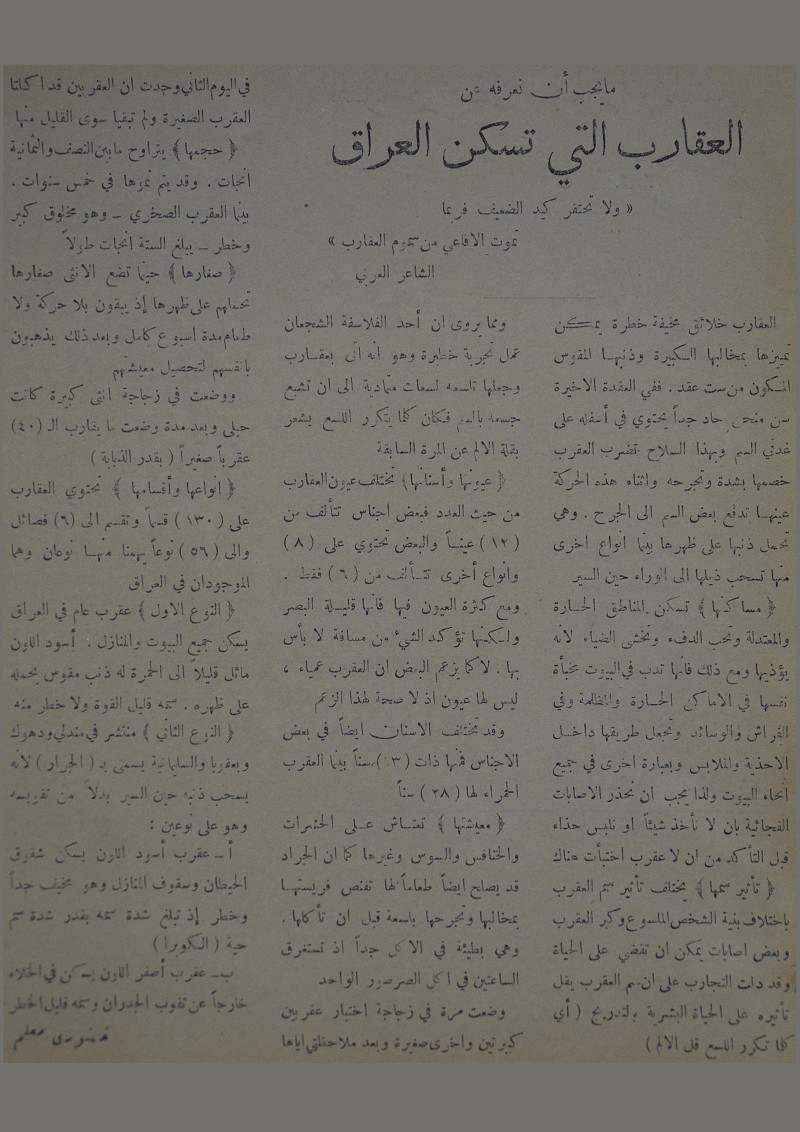 مايجب أن نعرفه عن
العقارب التي تسكن العراق
« ولا تحتقر كيد الضعيف فربما
تموت الافاعي من سموم العقارب »
الشاعر العربي
العقارب خلائق مخيفة خطرة يمكن
تمييزها بمخالبها الكبيرة وذنبها المقوس
المكون من ست عقد . ففي العقدة الاخيرة
سن منحن حاد جداً يحتوي في أسفله على
غدتي السم وبهذا السلاح تضرب العقرب
خصمها بشدة وتجرحه واثناء هذه الحركة
عينها تدفع بعض السم الى الجرح . وهي
تحمل ذنبها على ظهرها بينما انواع اخرى
منها تسحب ذيلها الى الوراء حين السير
﴿ مساكنها ﴾ تسكن المناطق الحارة
والمعتدلة وتحب الدفء وتخشى الضياء لانه
يؤذيها ومع ذلك فانها تدب في البيوت مخبأة
نفسها في الاماكن الحارة والمظلمة وفي
الفراش والوسائد وتجعل طريقها داخل
الاحذية والملابس وبعبارة اخرى في جميع
أنحاء البيوت ولذا يجب ان نحذر الاصابات
الفجائية بان لا نأخذ شيئاً او نلبس حذاء
قبل التأكد من ان لا عقرب اختبأت هناك
﴿ تأثير سمها ﴾ يختلف تأثير سم العقرب
باختلاف بنية الشخص الملسوع وكبر العقرب
وبعض اصابات يمكن ان تقضي على الحياة
وقد دلت التجارب على ان سم العقرب يقل
تأثيره على الحياة البشرية بالتدريج ( أي
كلما تكرر اللسع قل الالم )
ومما يروى ان أحد الفلاسفة الشجعان
عمل تجربة خطيرة وهو انه اتى بعقارب
وجعلها تلسعه لسعات متمادية الى ان تشبع
جسمه بالسم فكان كلما يتكرر اللسع يشعر
بقلة الالم عن المرة السابقة
﴿ عيونها وأسنانها ﴾ تختلف عيون العقارب
من حيث العدد فبعض اجناس تتألف من
( ١٢ ) عيناً والبعض تحتوي على ( ٨ )
وانواع أخرى تتألف من ( ٦ ) فقط .
ومع كثرة العيون فيها فانها قليلة البصر
ولكنها تؤكد الشيء من مسافة لا بأس
بها . لا كما يزعم البعض ان العقرب عمياء ،
ليس لها عيون اذ لا صحة لهذا الزعم
وقد تختلف الاسنان ايضاً في بعض
الاجناس فمنها ذات سناً بينما العقرب
الحمراء لها ( ٢٨ ) سناً
﴿ معيشتها ﴾ تعتاش على الحشرات
والخنافس والسوس وغيرها كما ان الجراد
قد يصلح ايضاً طعاماً لها تقنص فريستها
بمخالبها وتجرحها بلسعة قبل ان تأكلها .
وهي بطيئة في الاكل جداً اذ تستغرق
الساعتين في اكل الصرصور الواحد
وضعت مرة في زجاجة اختبار عقربين
كبيرتين واخرى صغيرة وبعد ملاحظتي اياها
في اليوم الثاني وجدت ان العقربين قد اكلتا
العقرب الصغيرة ولم تبقيا سوى القليل منها
﴿ حجمها ﴾ يتراوح ما بين النصف والثمانية
انجات . وقد يتم نموها في خمس سنوات .
بينما العقرب الصخري – وهو مخلوق كبير
وخطر – يبلغ الستة انجات طولاً
﴿ صغارها ﴾ حينما تضع الانثى صغارها
تحملهم على ظهرها إذ يبقون بلا حركة ولا
طعام مدة اسبوع كامل وبعد ذلك يذهبون
بانفسهم لتحصيل معيشتهم
ووضعت في زجاجة انثى كبيرة كانت
حبلى وبعد مدة وضعت ما يقارب الـ (٤٠)
عقرباً صغيراً ( بقدر الذبابة )
﴿ انواعها وأقسامها ﴾ تحتوي العقارب
على ( ١٣٠ ) قسماً وتقسم الى (٦) فصائل
والى ( ٥٦ ) نوعاً يهمنا منها نوعان وهما
الموجودان في العراق
﴿ النوع الاول ﴾ عقرب عام في العراق
يسكن جميع البيوت والمنازل . أسود اللون
مائل قليلاً الى الحمرة له ذنب مقوس يحمله
على ظهره . سمه قليل القوة ولا خطر منه
﴿ النوع الثاني ﴾ منتشر في مندلي ودهوك
وبعقوبا والسليمانية يسمى بـ ( الجرار ) لانه
يسحب ذنبه حين السير بدلاً من تقويسه
وهو على نوعين :
أ ـ عقرب أسود اللون يسكن شقوق
الحيطان وسقوف المنازل وهو مخيف جداً
وخطر إذ تبلغ شدة سمه بقدر شدة سم
حية ( الكوبرا )
ب ـ عقرب أصفر اللون يسكن في الخلاء
خارجاً عن ثقوب الجدران وسمه قليل الخطر
معلم